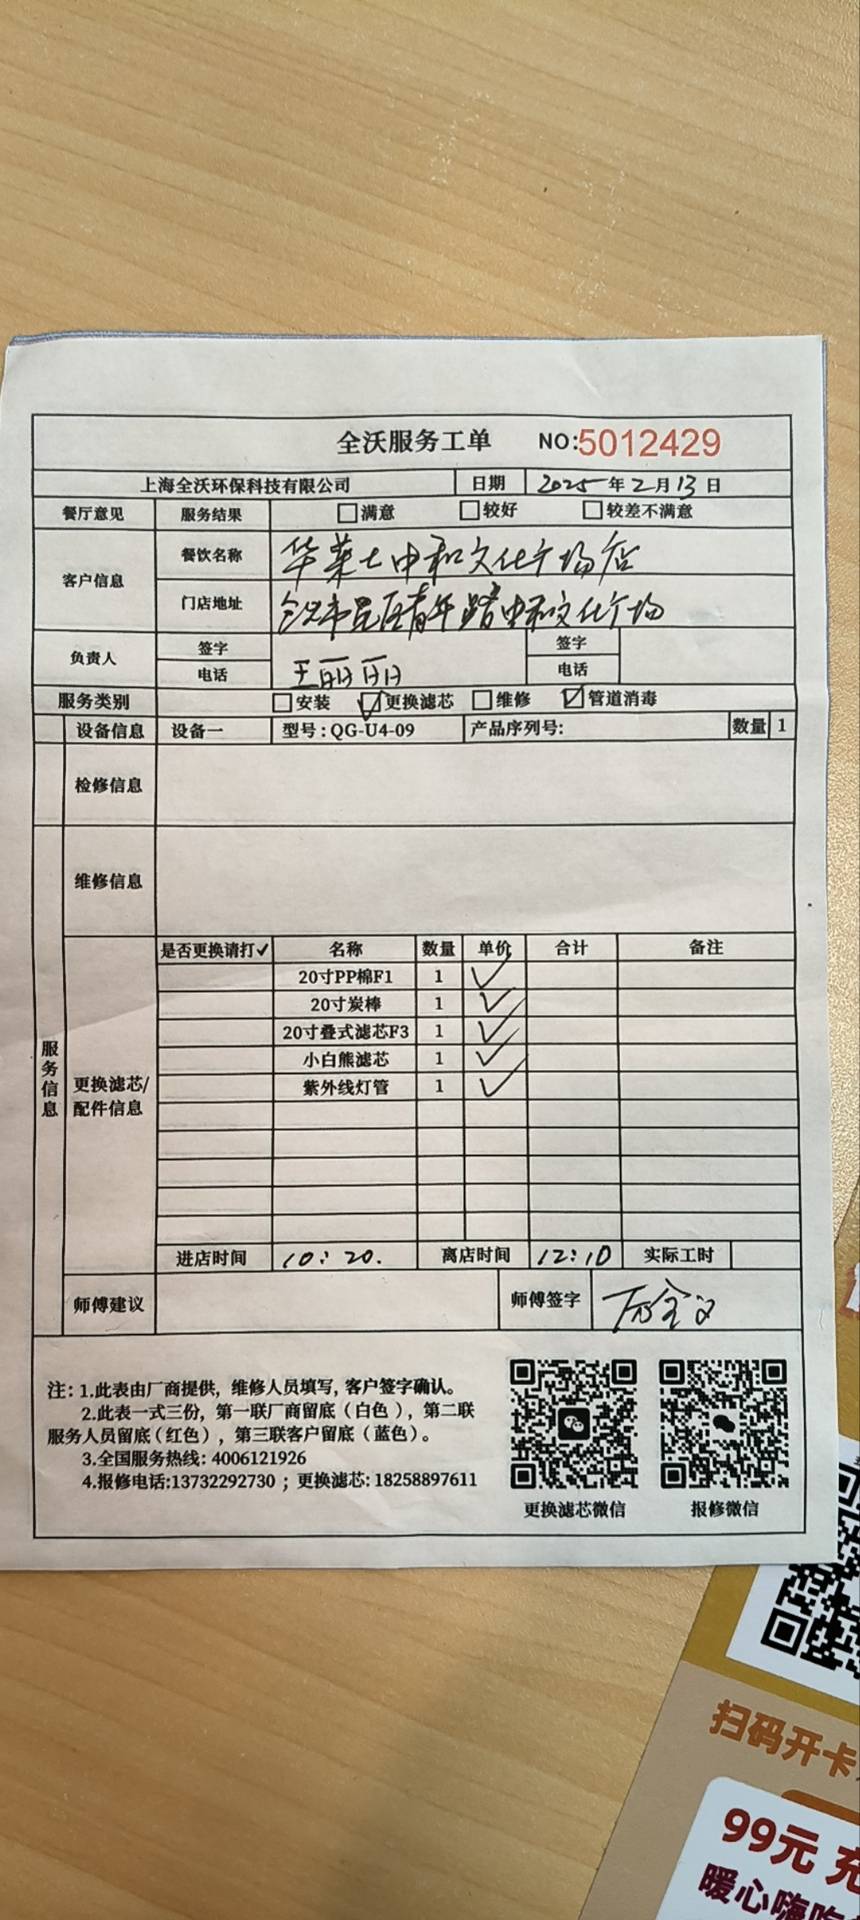 全沃服务工单 NO:5012429
上海全沃环保科技有限公司 日期 2025年2月13日
餐厅意见 服务结果 满意 较好 较差不满意
客户信息 餐饮名称 华莱士中和文化广场店
门店地址 市 区青年路中和文化广场
负责人 签字 签字
电话 王丽丽 电话
服务类别 安装 更换滤芯 维修 管道消毒
设备信息 设备一 型号:QG-U4-09 产品序列号: 数量 1
检修信息
维修信息
服务信息
更换滤芯/配件信息
是否更换请打✓ 名称 数量 单价 合计 备注
20寸PP棉F1 1 ✓
20寸炭棒 1 ✓
20寸叠式滤芯F3 1 ✓
小白熊滤芯 1 ✓
紫外线灯管 1 ✓
进店时间 10:20. 离店时间 12:10 实际工时
师傅建议 师傅签字
注:1.此表由厂商提供,维修人员填写,客户签字确认。
2.此表一式三份,第一联厂商留底(白色),第二联
服务人员留底(红色),第三联客户留底(蓝色)。
3.全国服务热线:4006121926
4.报修电话:13732292730;更换滤芯:18258897611
更换滤芯微信 报修微信
扫码开卡
99元 充
暖心嗨吃